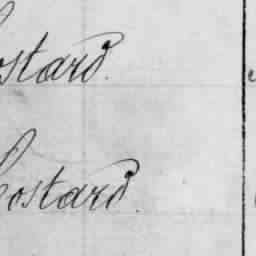 ostard.
Costard.